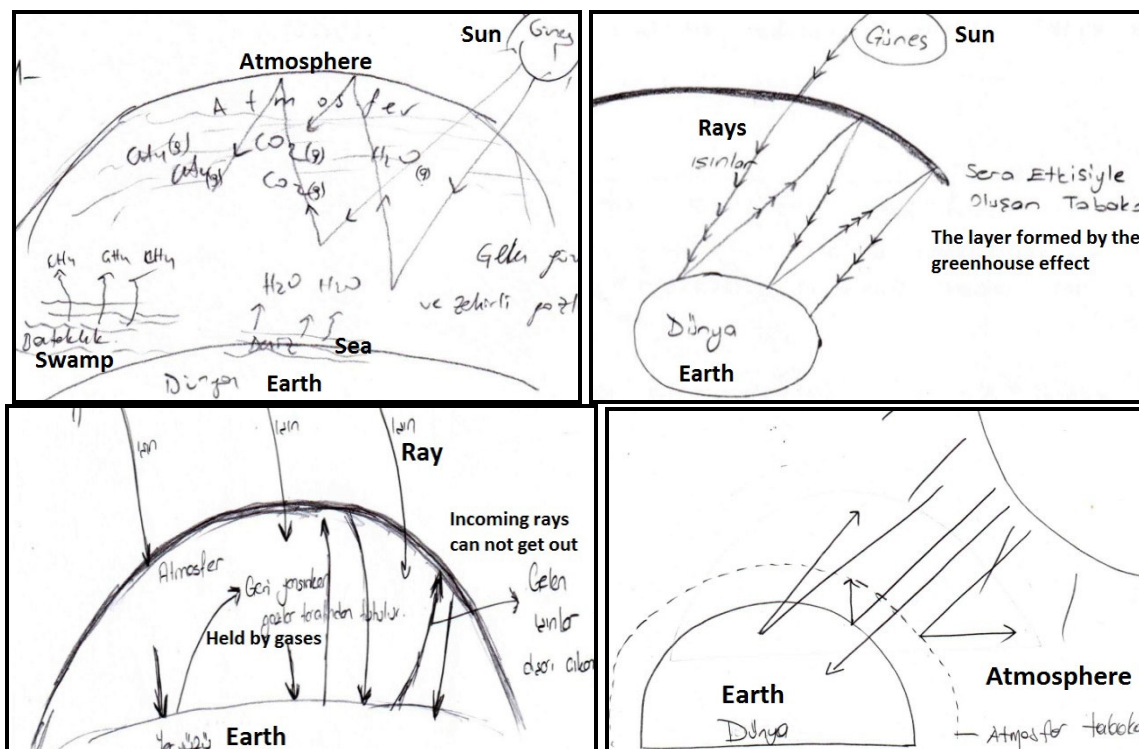 Sun
Güneş
Atmosphere
Atmosfer
CH4(g)
CO2(g)
H2O(g)
CH4(g)
CO2(g)
Gelen
ve zehirli gazl
CH4 CH4 CH4
H2O H2O
Bataklık
Swamp
Deniz
Sea
Dünya
Earth
Güneş
Sun
Rays
ışınlar
Sera Etkisiyle
Oluşan Tabaka
The layer formed by the
greenhouse effect
Dünya
Earth
1)
ışın
ışın
ışın
Ray
Incoming rays
can not get out
Atmosfer
Geri yansınken
gazlar tarafından tutulur.
Held by gases
Gelen
ışınlar
dışarı çıkar
Earth
Earth
Dünya
Atmosphere
Atmosfer tabaka